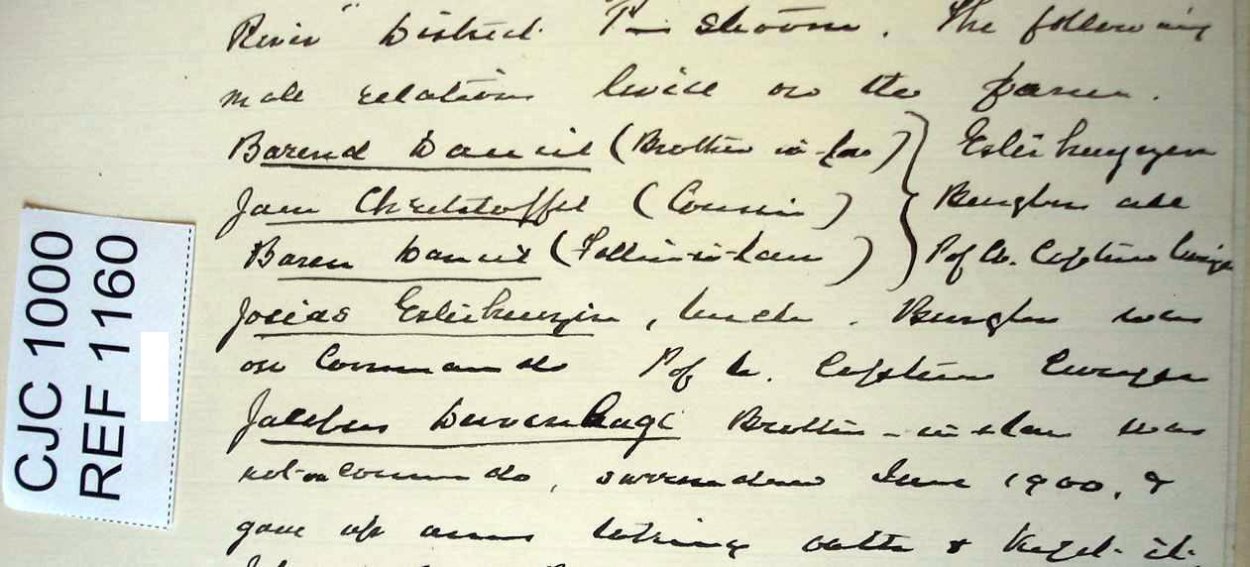 River" District. The following
male relations lived on the farm.
Barend Daniel (Brother-in-law)
Jan Christoffel (Cousin)
Baren Daniel (Father-in-law)
Burghers all
P of W. Capture
Josias Esterhuyzen, Uncle. Burgher was
on Commando P of W. Capture
Jacobus Davenhage Brother-in-law was
not on Commando, surrendered June 1900, &
gave up arms taking oath & kept it.
CJC 1000
REF 1160